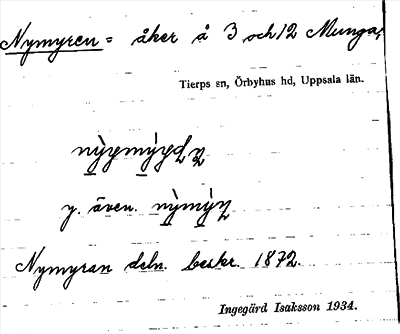 Nymyren = åker å 3 och 12 Munga,
Tierps sn, Örbyhus hd, Uppsala län.
y. även.
Nymyran deln. beskr. 1872.
Ingegärd Isaksson 1934.